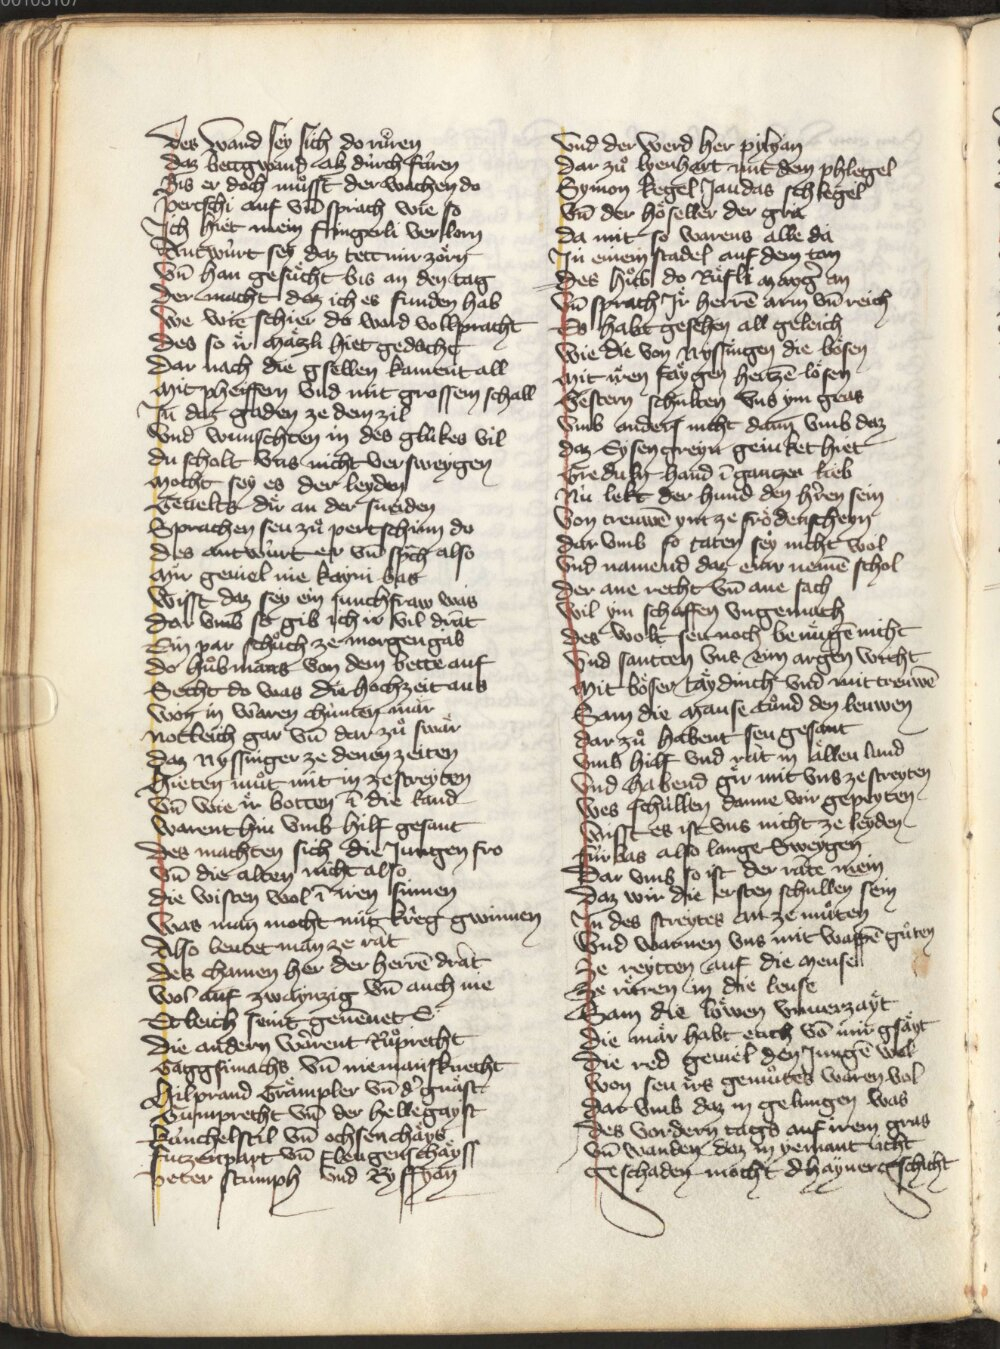 00103107
Des wand sey sich do rüren
Daz bettgwand als durch füren
Bis er doch müsst der wachen do
Pertschi auf vn̄ sprach wie so
Ich hiet mein fingerli verlorn
Antwürt sey daz tett mir zorn
Vn̄ han gesücht bis an den tag
Der macht daz ich es funden hab
We wie schier do ward vollpracht
Des so ir Mätzli hiet gedacht
Dar nach die gsellen kament all
Mit pheiffern vnd mit grossem schall
In daz gaden ze dem zil
Vnd wunschten in des glükes vil
Du scholt vns nicht versweygen
Mocht sey es der leyden
Sprachen seu zů pertschinn do
Des antwürt er vn̄ sp̄ch also
Mir geuiel nie kayni bas
Wisst daz sey ein junchfraw was
Dar vmb so gib ich ir vil drat
Ein par schůch ze morgengab
Do hůb mans von dem bette auf
Secht do was die hochzeit aus
Won in waren chunten mär
Notleich gar vn̄ dar zů swär
Daz Nyssinger ze denen zeiten
Hieten můt mit in ze streyten
Vn̄ wie ir botten ī die land
Warent hin vmb hilf gesant
Des machten sich die Jungen fro
Vn̄ die alten nicht also
Die wisten wol ī iren sinnen
Was man mocht mit krieg gwinnen
Also leutet man ze rat
Des chamen her der herrē drat
Wol auf zwaynzig vn̄ auch me
Etleich seint genēnet E
Die andern wärent Rüprecht
Gaggsimachs vn̄ niemanfknecht
Hilprand Grämpler vn̄ d' gnäst
Gumprecht vn̄ der hellegayst
Kanchelstil vn̄ ochsenchäys
Futzenpart vn̄ fleugenschäyss
Peter stumph vnd Ryffyan
Vnd der werd her pylyan
Dar zů lyenhart mit dem phlegel
Symon kegel Jaudas schlegel
Vn̄ der höseller der gra
Da mit so warens alle da
In einem stadel auf dem tan
Des hůb do Rüfli mayg' an
Vn̄ sprach Ir herrē arm vn̄ reich
Es habt gesehen all geleich
Wie die von Nyssingen die bösen
Mit iren faygen hertzē lösen
Gestern schulten vns ym gras
Vmb anders nicht dann vmb daz
Daz Eysengreyn geiuket hiet
Gredulin hand ī gantzer lieb
Nu lekt der hund den h'ren sein
Von treuwē ynt ze frödenscheyn
Dar vmb so taten sey nicht wol
Vnd namend daz enir nemē schol
Der ane recht vn̄ ane sach
Wil ym schaffen vngemach
Des wolt seu noch benügē nicht
Vnd santten vns ein argen wicht
Mit böser täydinch vnd mit treuwē
Sam die mause tůnd den leuwen
Dar zů habent seu gesant
Vmb hilf vnd rat in allen land
Vnd habend gir mit vns ze streyten
Wes schüllen danne wir gepeyten
Wisst es ist vns nicht ze leyden
Fürbas also lange Sweygen
Dar vmb so ist der räte mein
Daz wir die ersten schullen sein
In des streytes an ze můten
Vnd warnen vns mit waffē gůten
Ze reytten auf die meuse
Ze varen in die leuse
Sam die löwen vnuerzayt
Die mär habt euch vō mir gsayt
Die red geuiel den Jungē wol
Won seu irs gemůtes waren vol
Dar vmb daz in gelungen was
Des vordern tags auf irem gras
Vn̄ wanden daz in yemant icht
Geschaden mocht d'hayner gschicht